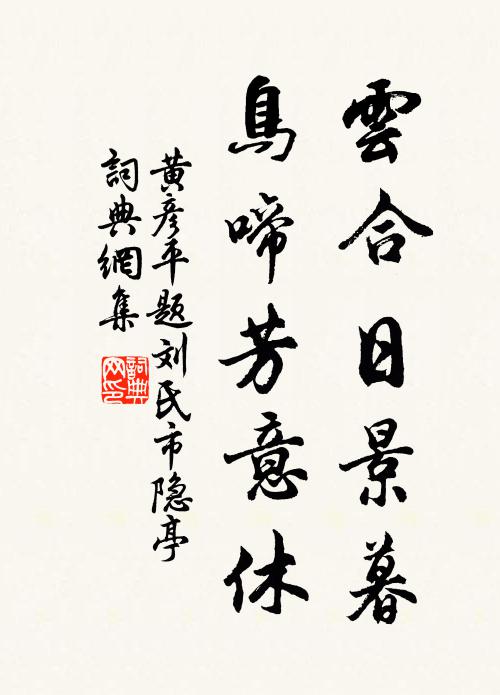 雲合日景暮
鳥啼芳意休
黄彦平题刘氏市隐亭
詞典網集
詞典网印